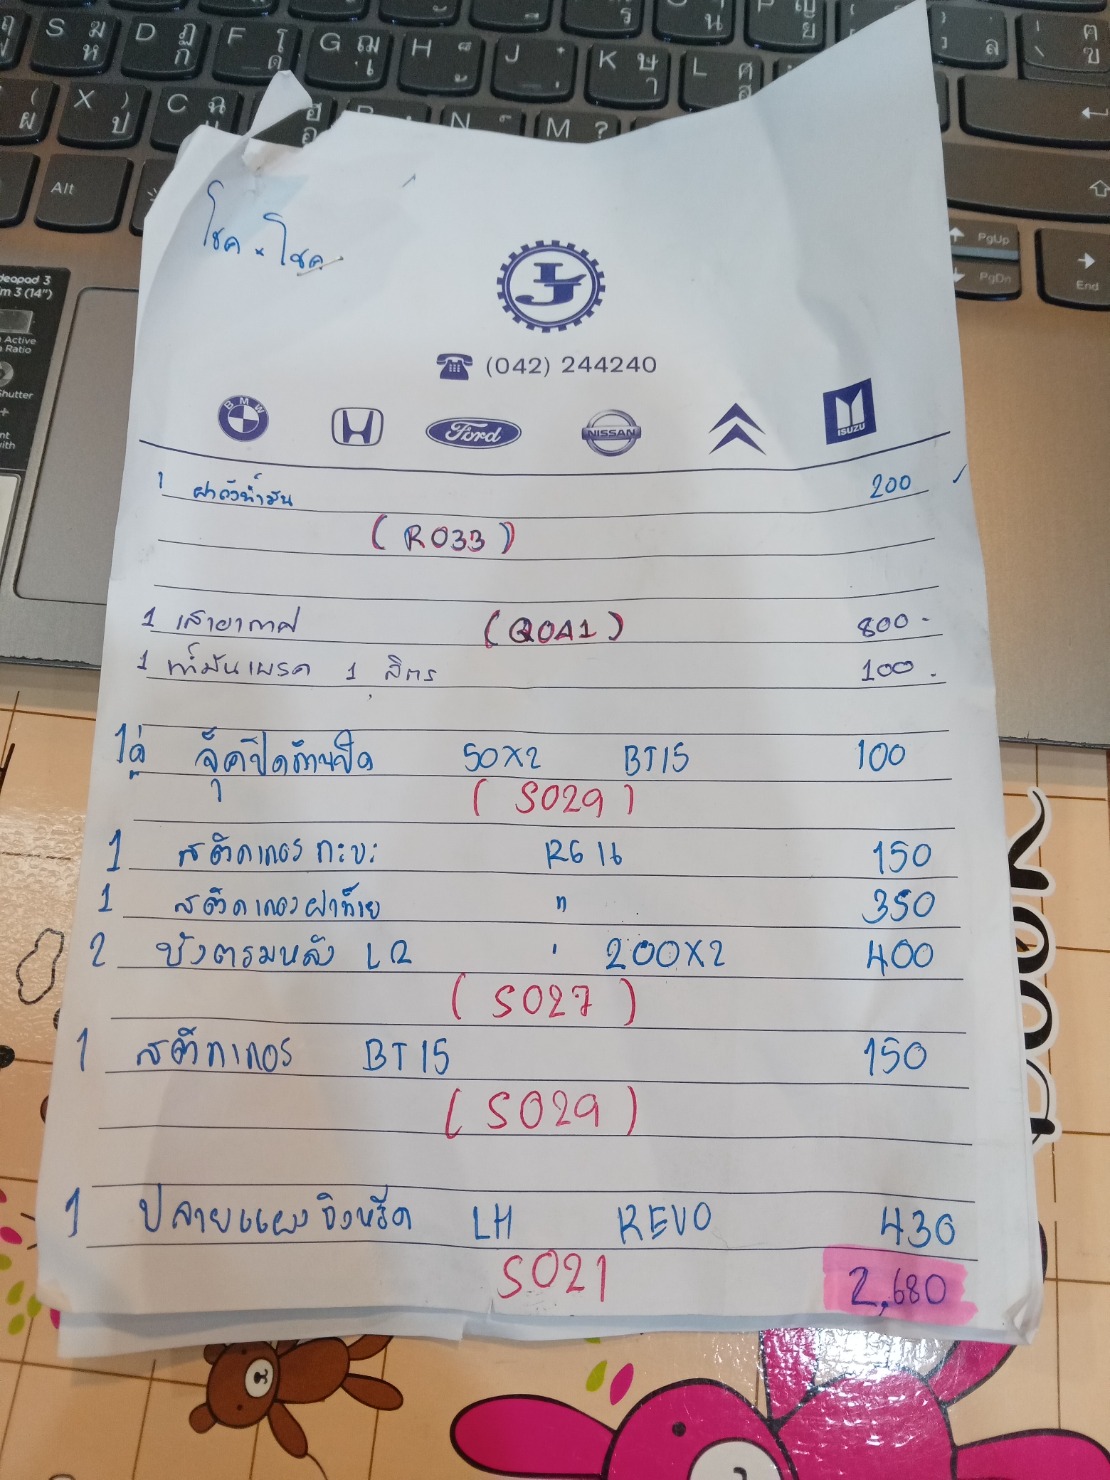 S ม ห D ฏ ก F โ ด G ฌ เ H J K ษ า L ศ ส
X ) ป C ฉ N M ?
Alt
PgUp
PgDn
End
ideapad 3
Active
Ratio
Shutter
โชค . โชค
LJ
(042) 244240
BMW H Ford NISSAN ISUZU
1 ฝาถังน้ำมัน 200
(R033)
1 เสาอากาศ (Q041) 800.-
1 น้ำมันเบรค 1 ลิตร 100.
1คู่ 50X2 BT15 100
(S029)
1 สติกเกอร์กะบะ RG16 150
1 สติกเกอร์ฝาท้าย " 350
2 บังตรมหลัง LR ' 200X2 400
(S027)
1 สติกเกอร์ BT15 150
(S029)
1 ปลายแผงจิงหรีด LH REVO 430
S021 2,680